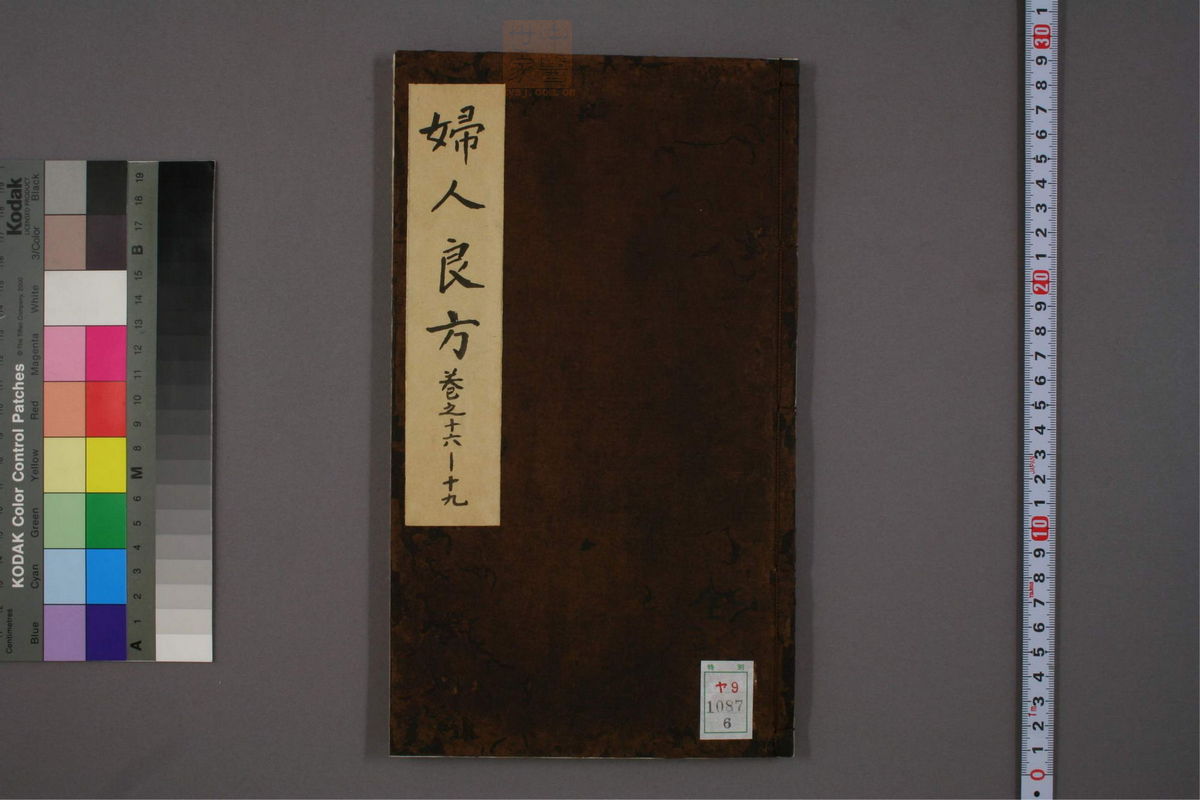 婦人良方 卷之十六－十九
特 別
ヤ9
1087
6
Kodak
LICENSED PRODUCT
KODAK Color Control Patches
© The Tiffen Company, 2000
Centimetres
Blue
Cyan
Green
Yellow
Red
Magenta
White
3/Color
Black
A 1 2 3 4 5 6 M 8 9 10 11 12 13 14 15 B 17 18 19
0 1 2 3 4 5 6 7 8 9 10 1 2 3 4 5 6 7 8 9 20 1 2 3 4 5 6 7 8 9 30 1